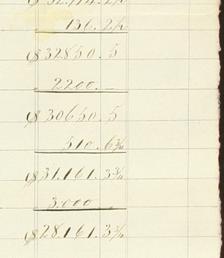 136.2½
$32850.5
2200.-
$30650.5
510.6¾
$31.161.3¾
3.000
$28.161.3¾